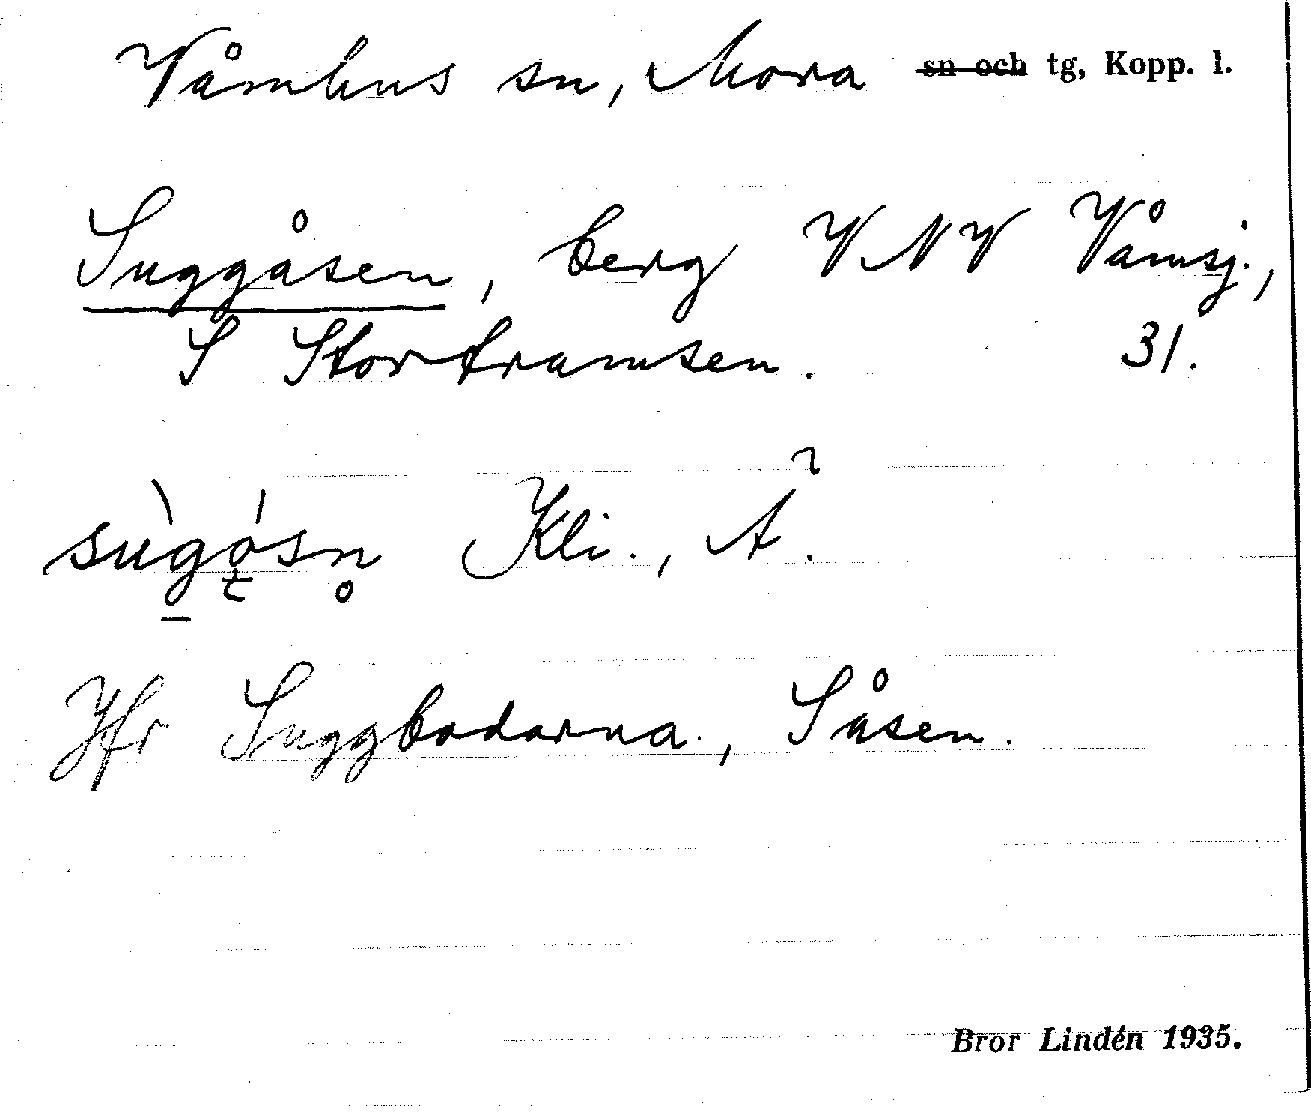 Våmhus sn, Mora sn och tg, Kopp. l.
Suggåsen, berg VNV Våmsj.,
S Stortramsen. 31.
sùgǫ́sn̥ Kli., A.
Jfr Suggbodarna., Såsen.
Bror Lindén 1935.